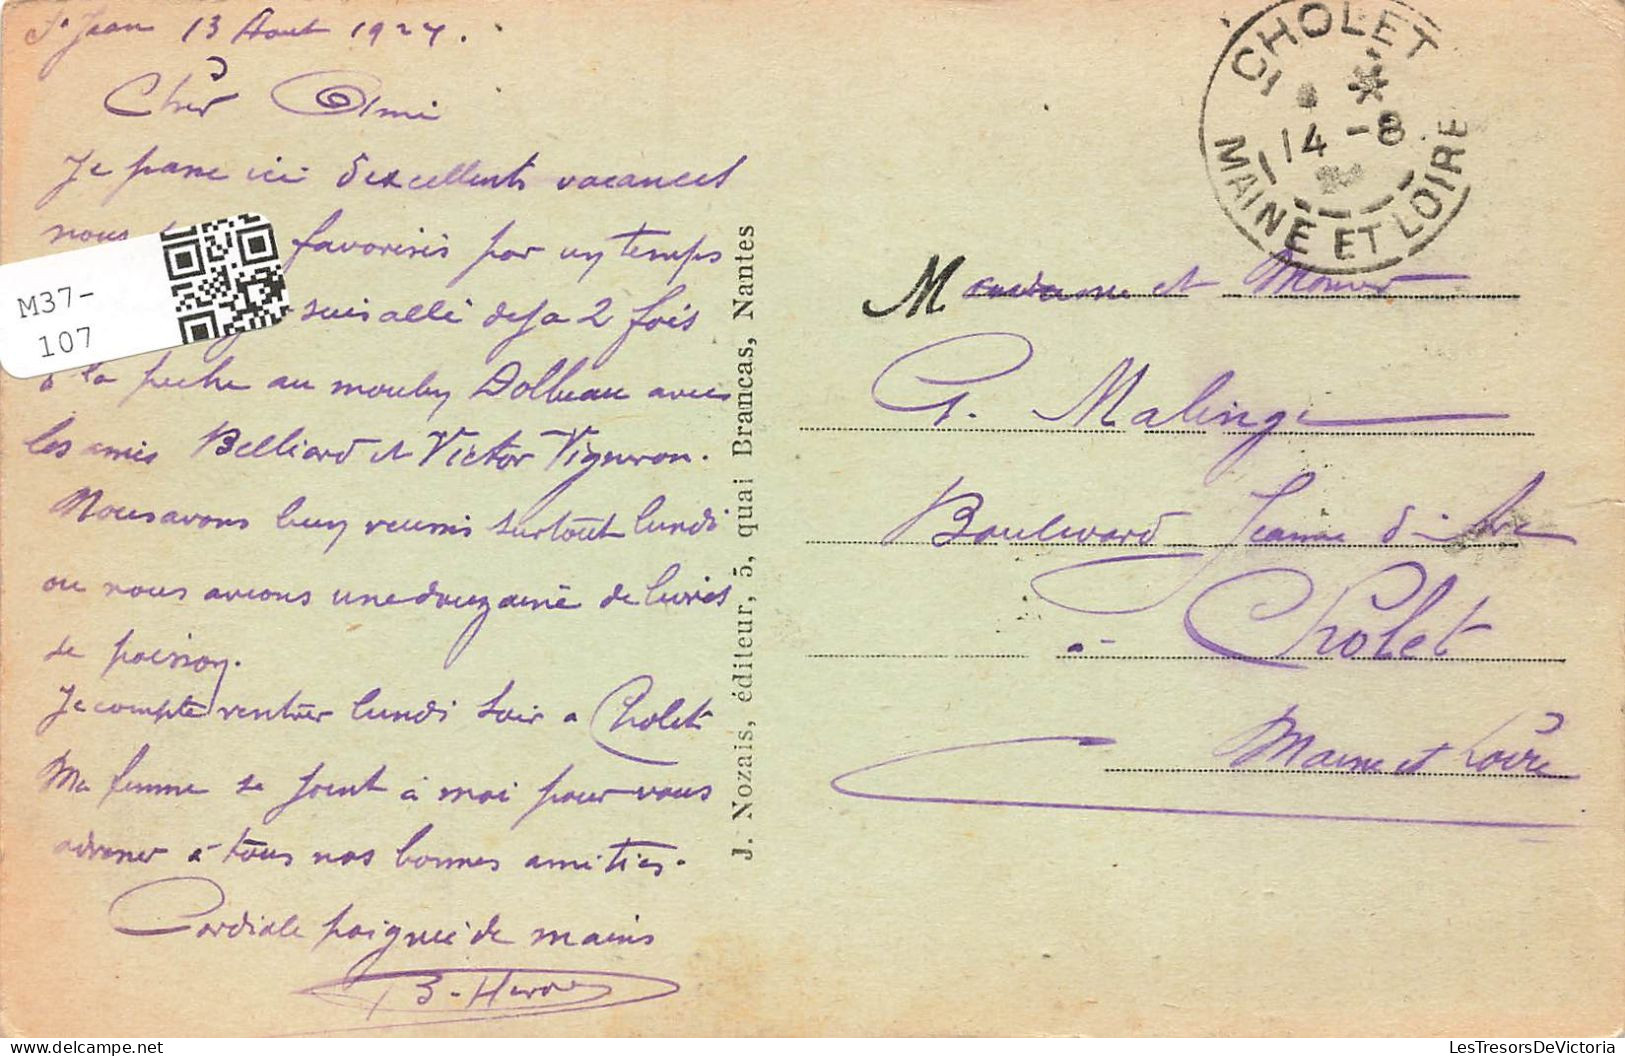 St Jean 13 Aout 1924.
Cher Ami
Je passe ici d'excellents vacances
nous favorisés par un temps
suis allé deja 2 fois
à la peche au moulin Dolbeau avec
les amis Belliard et Victor Vigneron.
Nous avons bien reussi surtout lundi
ou nous avions une douzaine de livres
de poisson.
Je compte rentrer lundi soir a Cholet
Ma femme se joint à moi pour vous
adresser à tous nos bonnes amitiés.
Cordiale poignée de mains
M37-
107
J. Nozais, éditeur, 5, quai Brancas, Nantes
CHOLET
14 -8
MAINE ET LOIRE
Madame et Monsieur
G. Malinge
Boulevard Jeanne d'Arc
à Cholet
Maine et Loire
LesTresorsDeVictoria.com